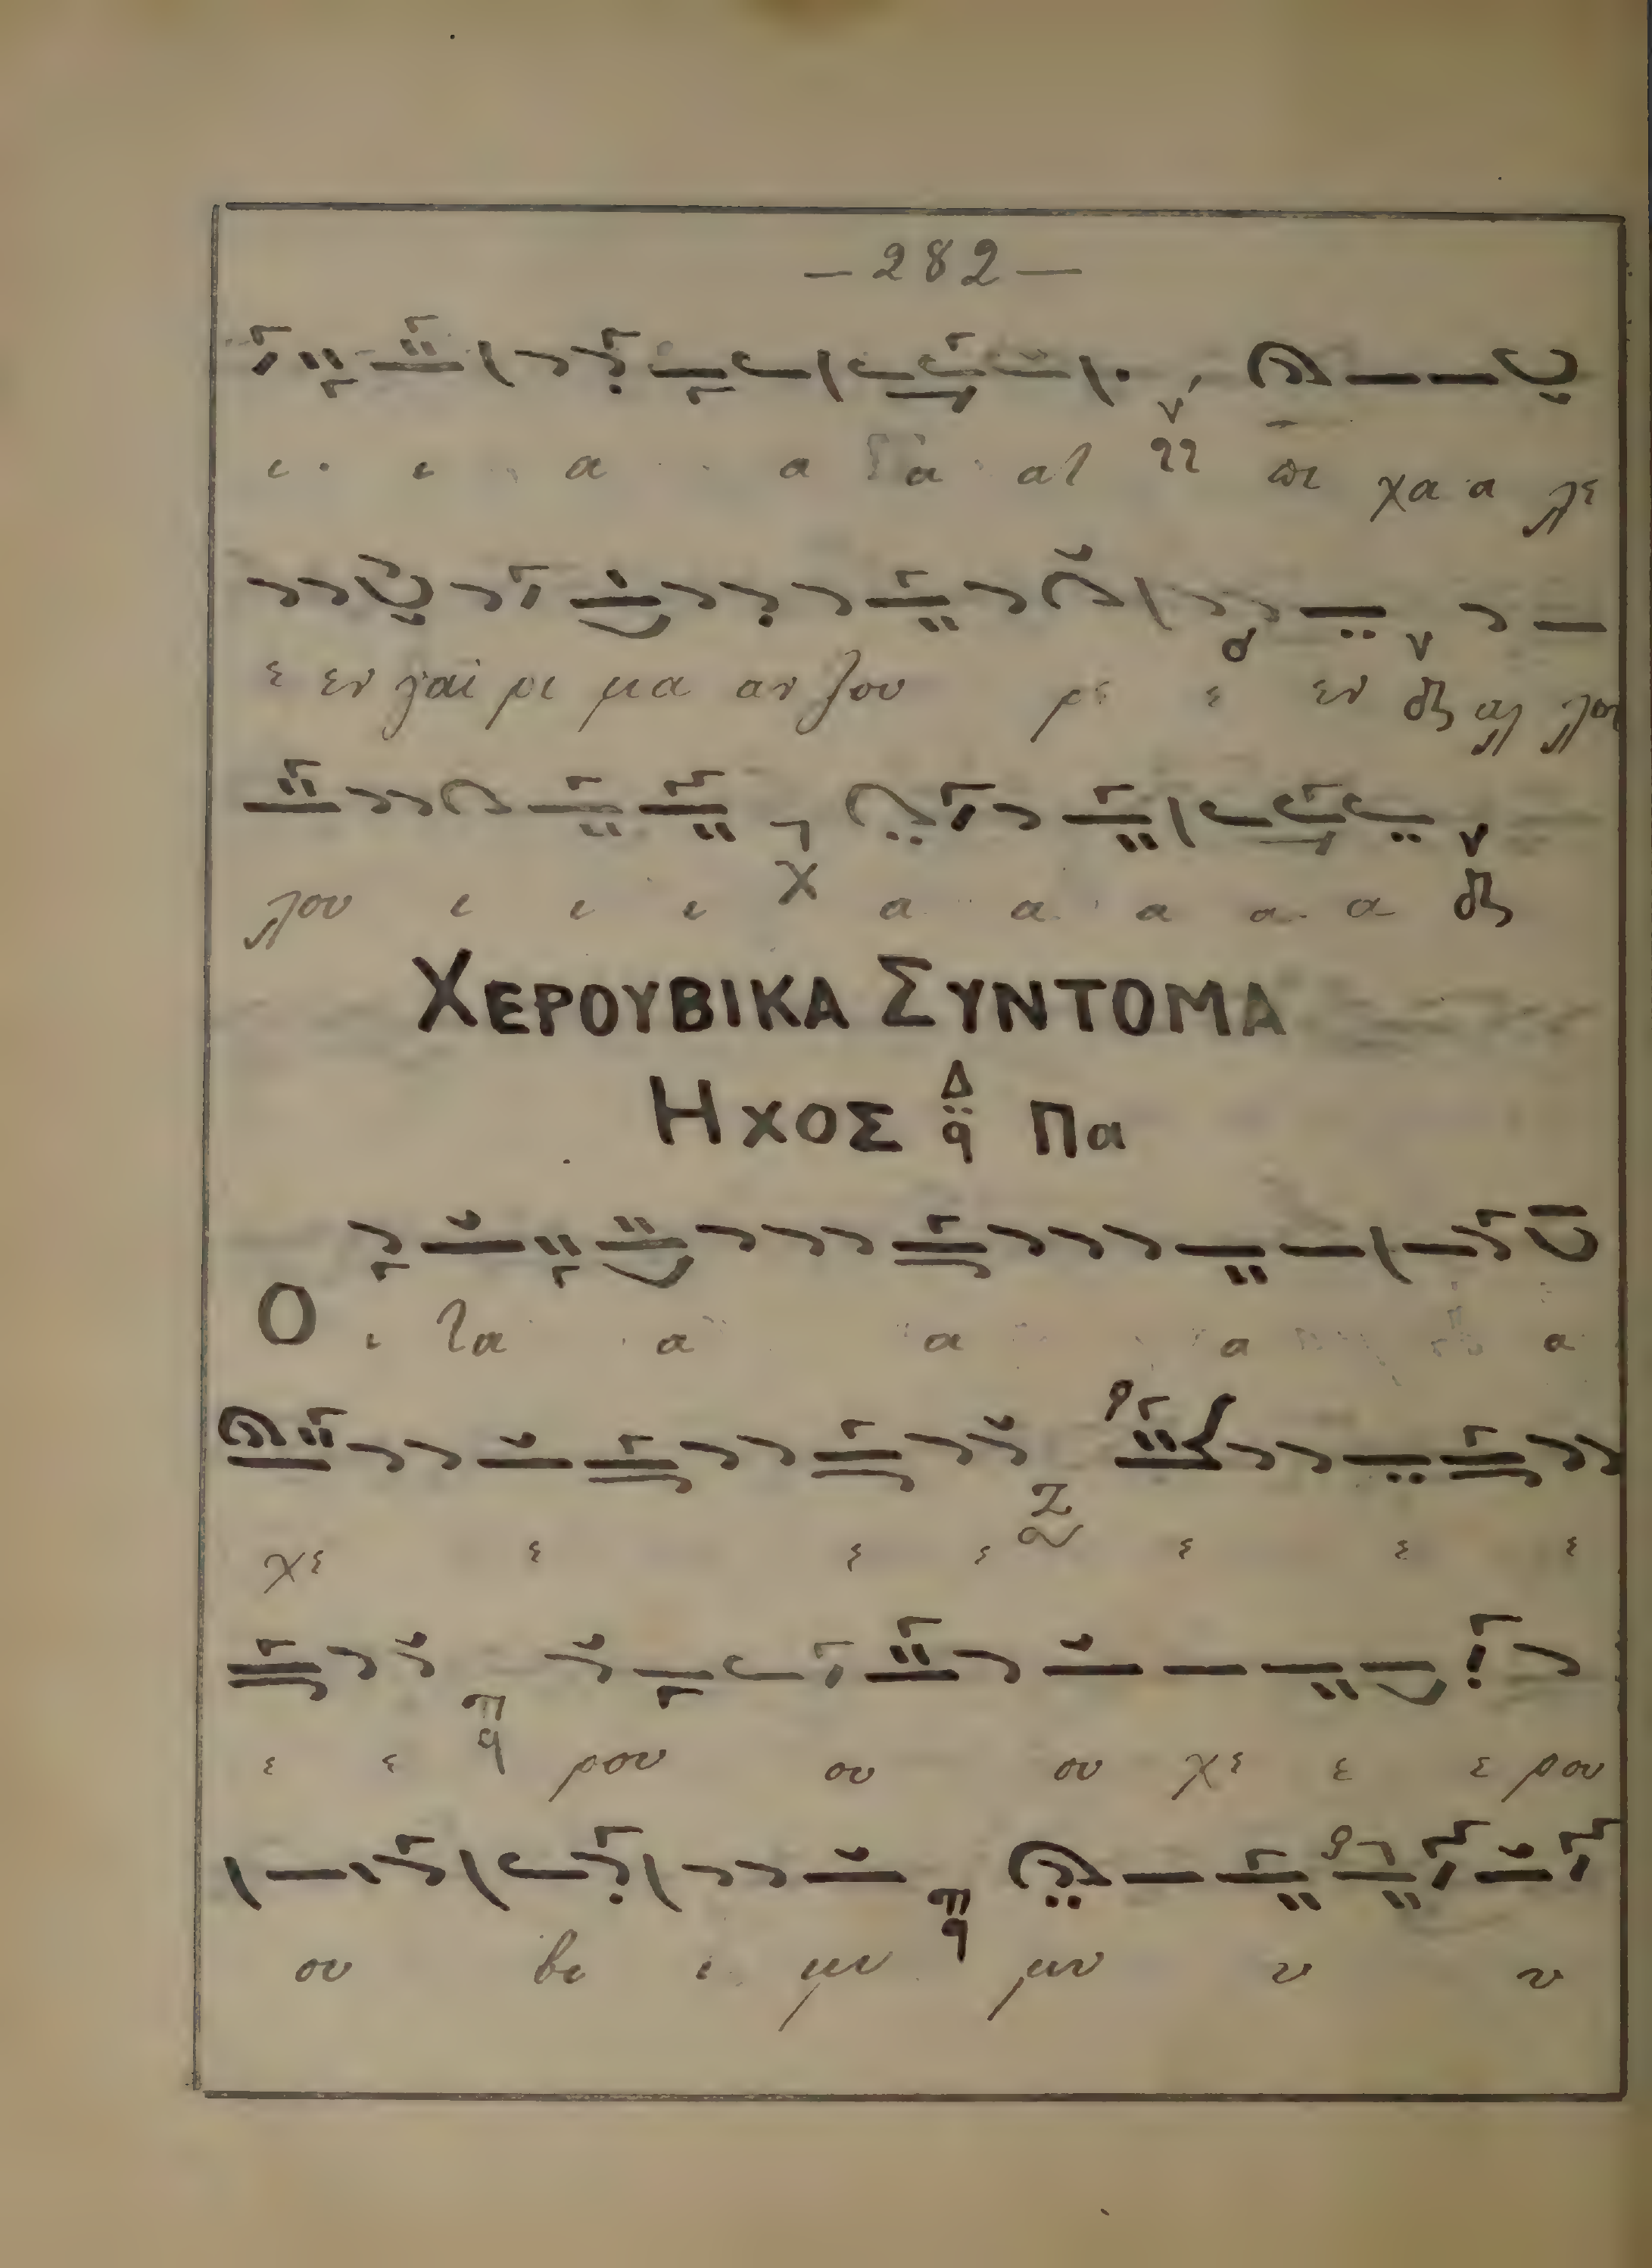 — 282 —
ι ι α α α ατ χα α λε
ε εν ται ρι μα αν του ρε ε εν αλ λη
λου ι ι ι χ α α α α α
ΧΕΡΟΥΒΙΚΑ ΣΥΝΤΟΜΑ
ΗΧΟΣ Δ q Πα
Ο ι τα α α α α
χε ε ε ε Z ε ε ε
ε ε π q ρου ου ου χε ε ε ρου
ου βι ι μυ π q μυ υ υ